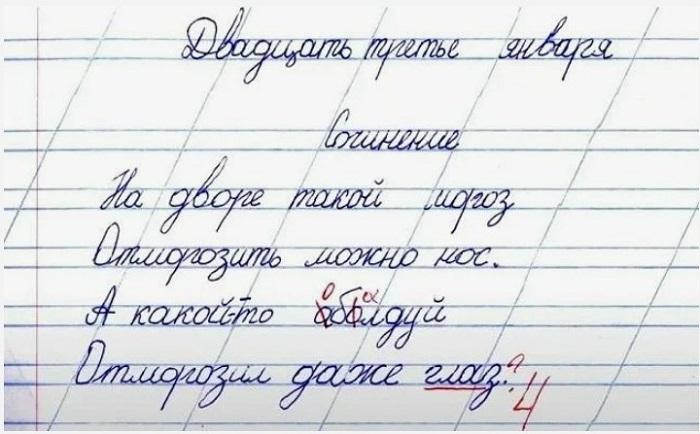 Двадцать третье января
Сочинение
На дворе такой мороз
Отморозить можно нос.
о а
А какой-то аболдуй
Отморозил даже глаз. ? 4